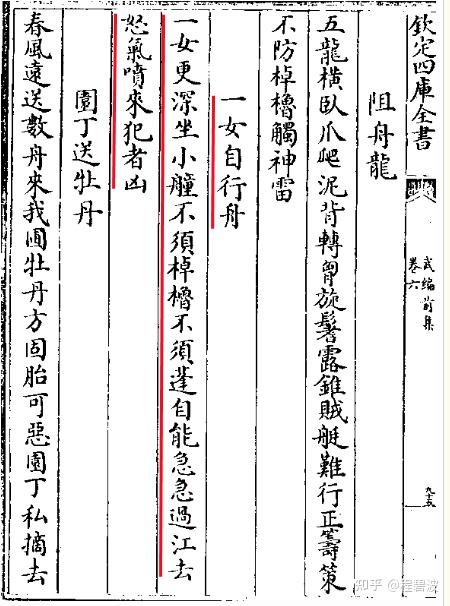 欽定四庫全書
武編前集
卷六
九十五
阻舟龍
五龍橫臥爪爬泥背轉胷旋鬐露錐賊艇難行正籌策
不防棹櫓觸神雷
一女自行舟
一女更深坐小艟不須棹櫓不須蓬自能急急過江去
怒氣噴來犯者凶
園丁送牡丹
春風遠送數舟來我圃牡丹方固胎可惡園丁私摘去
知乎 @程碧波